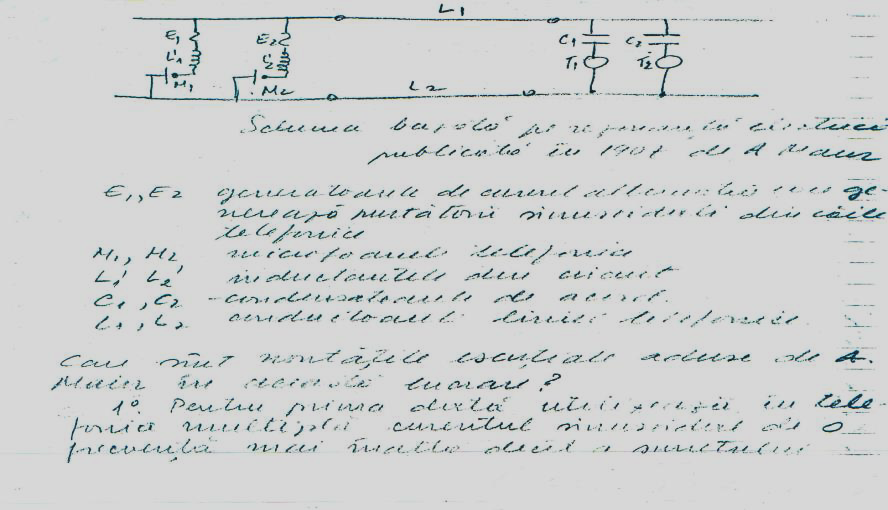 L1
E1 E2 C1 C2
L'1 L'2 T1 T2
M1 M2
L2
Schema bazată pe rezonanță
publicată în 190 de A Maier
E1, E2 generatoarele de curent alternativ ge-
nerează purtătorii sinusoidali din căile
telefonice
M1, M2 microfoanele telefonice
L'1 L'2 inductanțele din circuit
C1, C2 - condensatoarele de acord.
L1, L2 conductoarele liniei telefonice
Care sînt noutățile esențiale aduse de A.
Maier în această lucrare?
1º. Pentru prima dată utilizează în tele-
fonia multiplă curentul sinusoidal de o
frecvență mai înaltă decît a sunetului